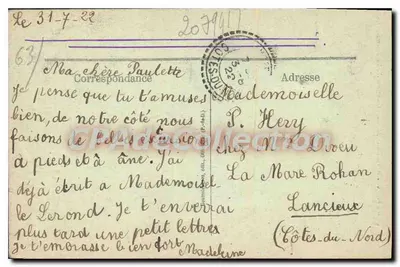 Le 31-7-22
207941
63
Correspondance
Adresse
Ma chère Paulette
Je pense que tu t'amuses
bien, de notre côté nous
faisons de belles
à pied et à âne. J'ai
déjà écrit a Mademoisel
le Lerond. Je t'enverrai
plus tard une petit lettres
je t'embrasse bien fort
Madeleine
Mademoiselle
P. Hery
chez
La Mare Rohan
Lancieux
(Côtes-du-Nord)
COTES-DU-NORD